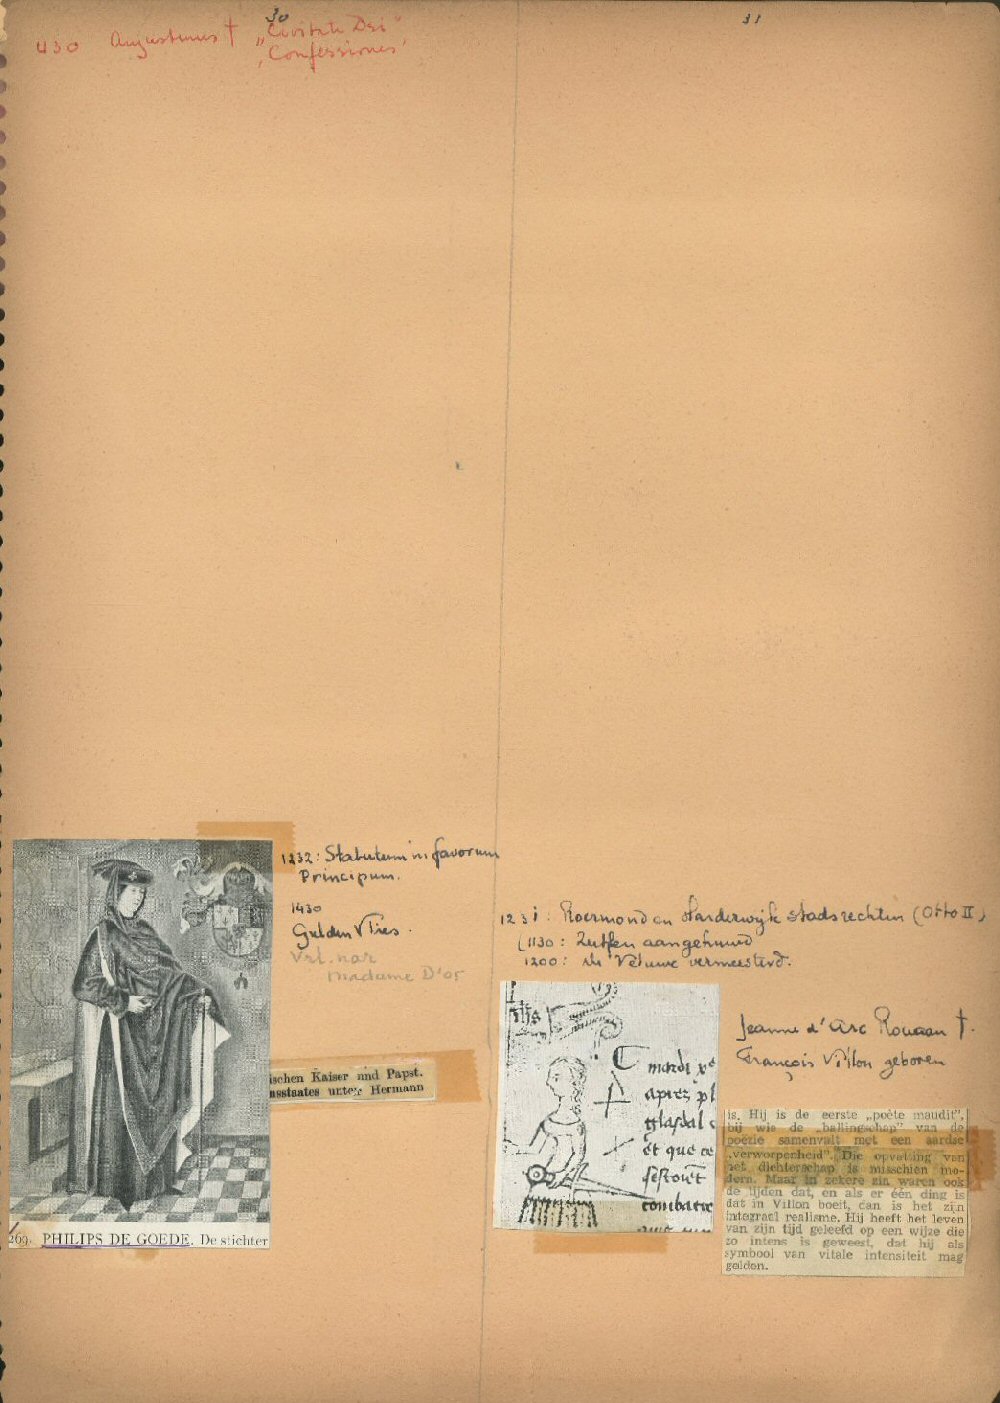 30
31
430 Augustinus † „Civitate Dei”
„Confessiones”
1232: Statutum in favorum
Principum.
1430
Gulden Vlies.
Vrl. nar
Madame D'or
ischen Kaiser und Papst.
nsstaates unter Hermann
269. PHILIPS DE GOEDE. De stichter
1231: Roermond en Harderwijk stadsrechten (Otto II)
(1130: Zutfen aangehuwd
1200: de Veluwe vermeesterd.
Jeanne d'Arc Rouaan †.
François Villon geboren
mardi
apres
et que ce
is. Hij is de eerste „poète maudit”,
bij wie de „ballingschap” van de
poëzie samenvalt met een aardse
„verworpenheid”. Die opvatting van
het dichterschap is misschien mo-
dern. Maar in zekere zin waren ook
de tijden dat, en als er één ding is
dat in Villon boeit, dan is het zijn
integraal realisme. Hij heeft het leven
van zijn tijd geleefd op een wijze die
zo intens is geweest, dat hij als
symbool van vitale intensiteit mag
gelden.